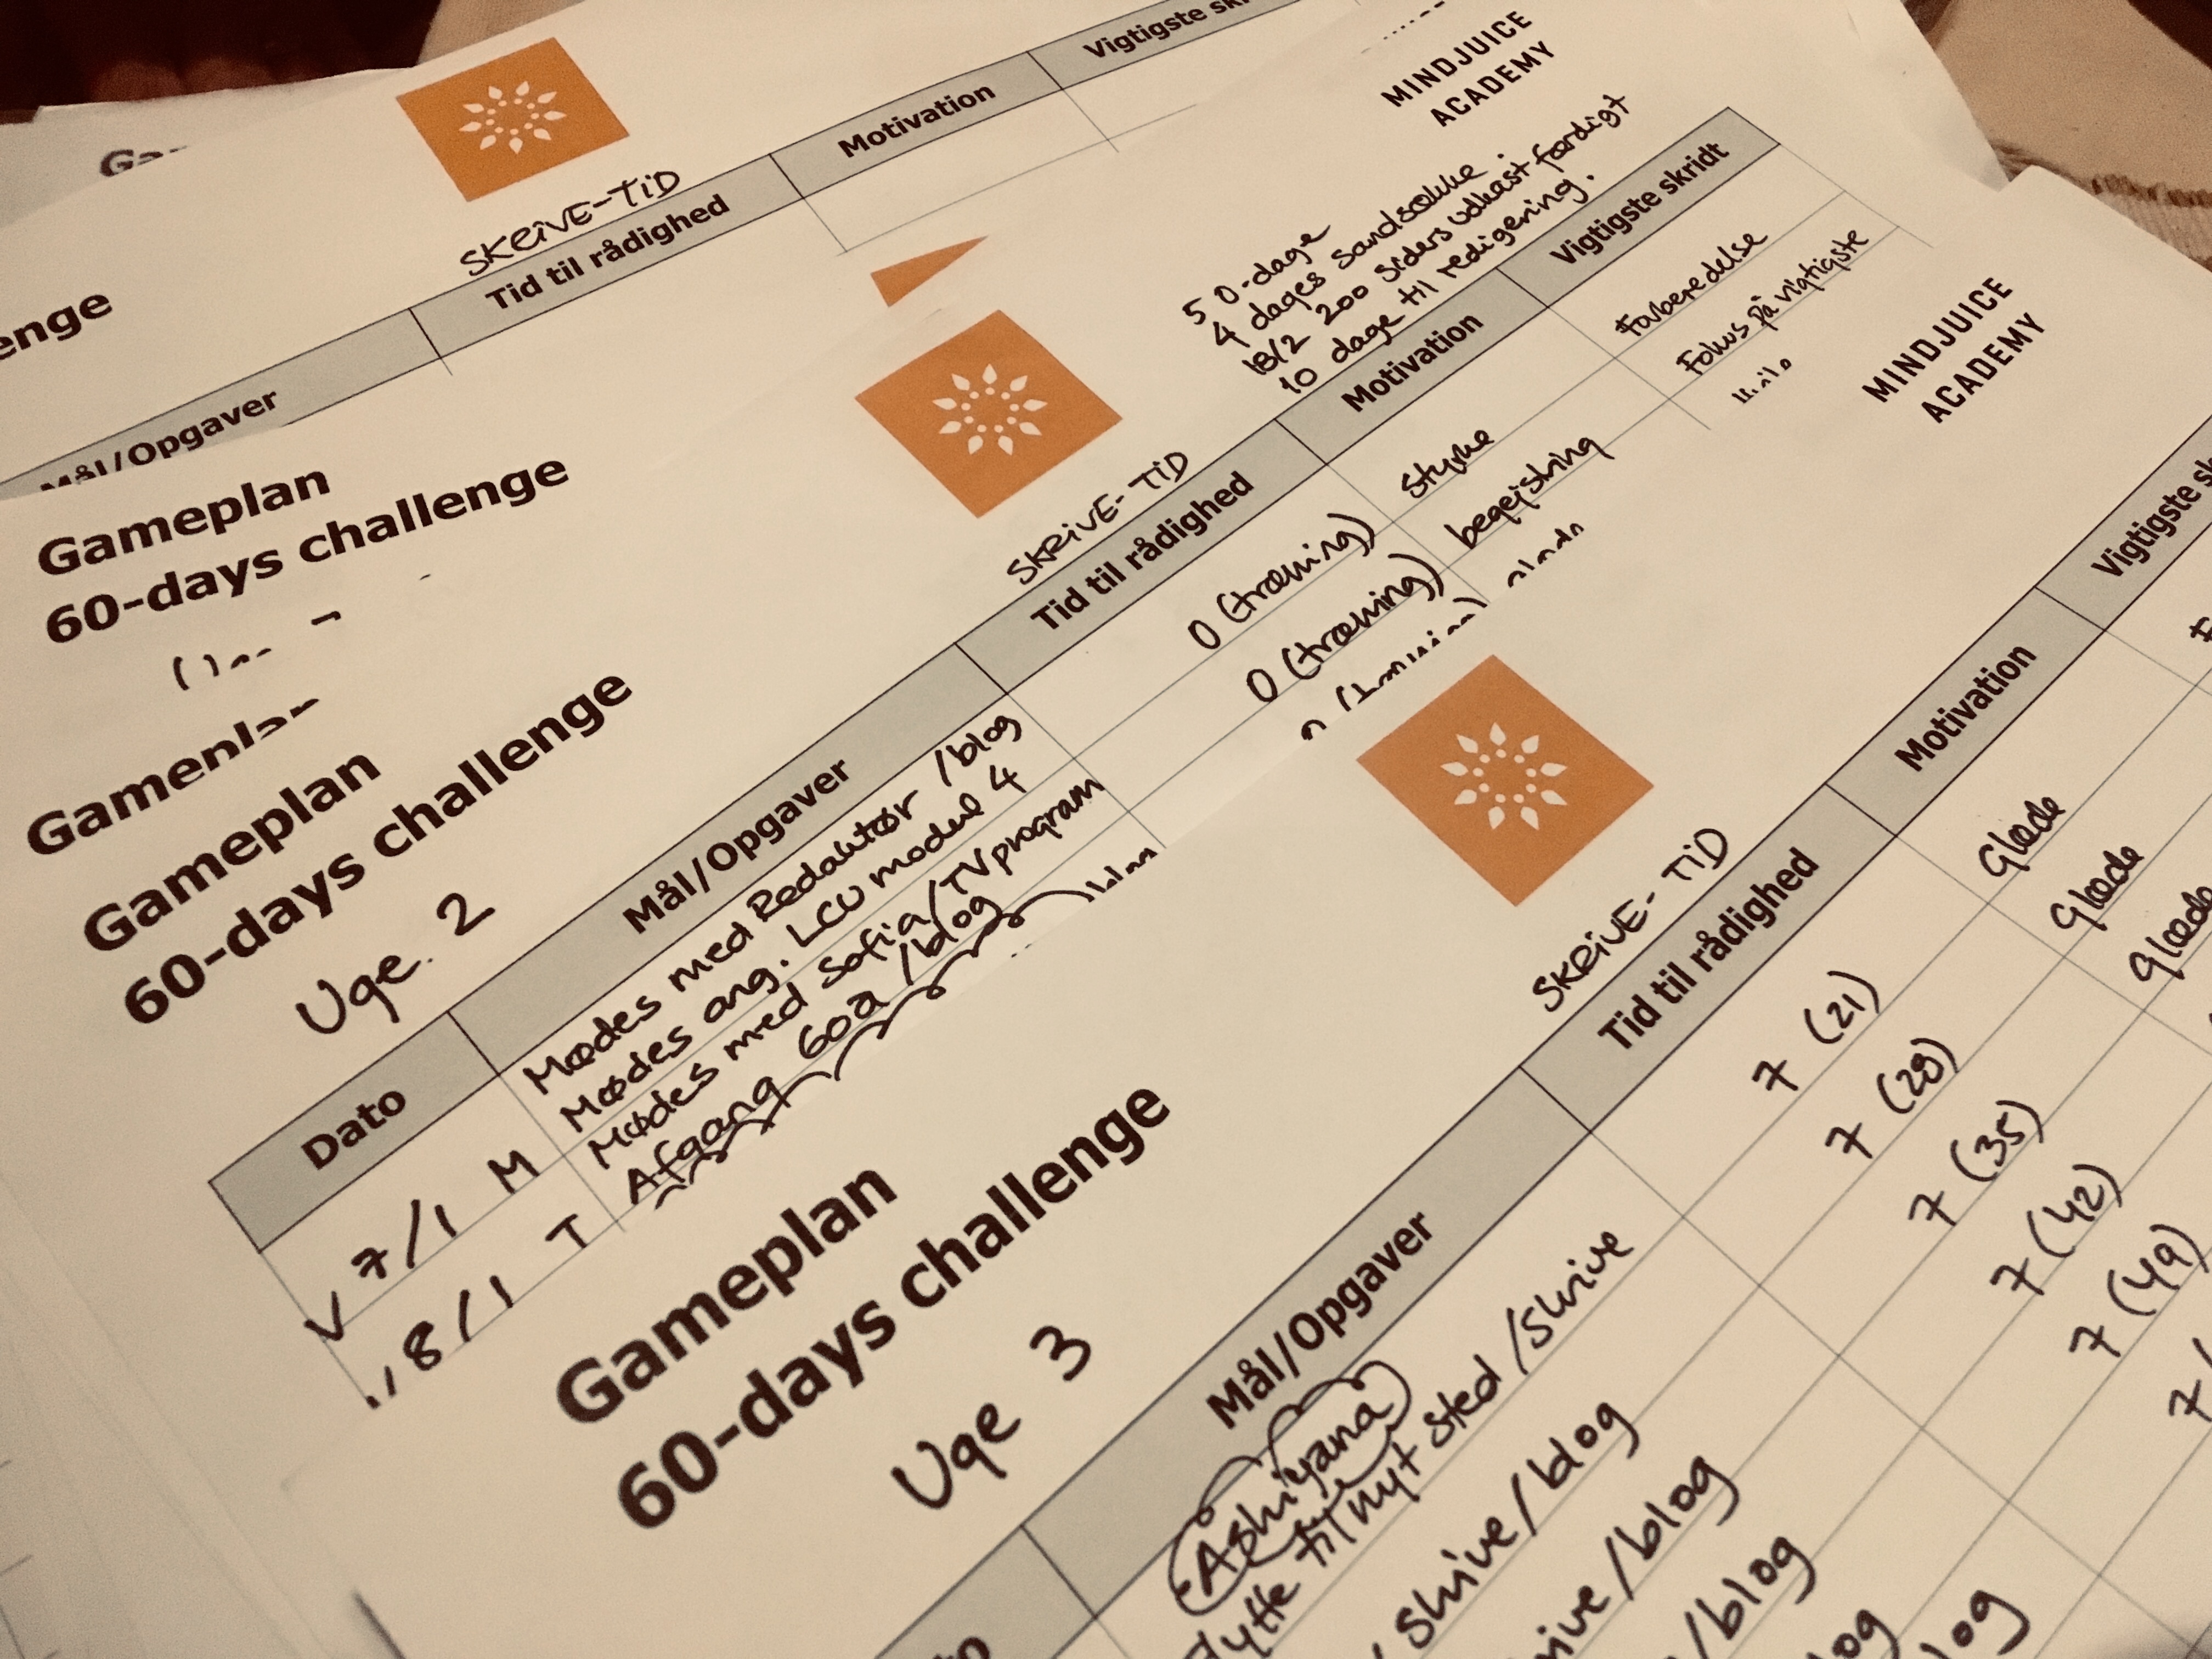 Vigtigste
Motivation
SKRIVE-TID
Tid til rådighed
enge
Mål/Opgaver
Gameplan
60-days challenge
MINDJUICE
ACADEMY
5 0-dage
4 dages
18/2 200 siders udkast færdigt
10 dage til redigering.
SKRIVE-TID
Gameplan
60-days challenge
Uge 2
Dato
Mål/Opgaver
Tid til rådighed
Motivation
Vigtigste skridt
7/1 M
Mødes med Redaktør /blog
Mødes ang. LCU modul 4
0 (træning)
styrke
Forberedelse
8/1 T
Mødes med Sofia/TVprogram
Afgang Goa /blog
0 (træning)
begejstring
Fokus på vigtigste
MINDJUICE
ACADEMY
SKRIVE-TID
Gameplan
60-days challenge
Uge 3
Mål/Opgaver
Tid til rådighed
Motivation
Vigtigste
Ashiyana
til nyt sted /skrive
7 (21)
Glæde
/ skrive/blog
7 (28)
Glæde
/blog
7 (35)
Glæde
/blog
7 (42)
7 (49)
7